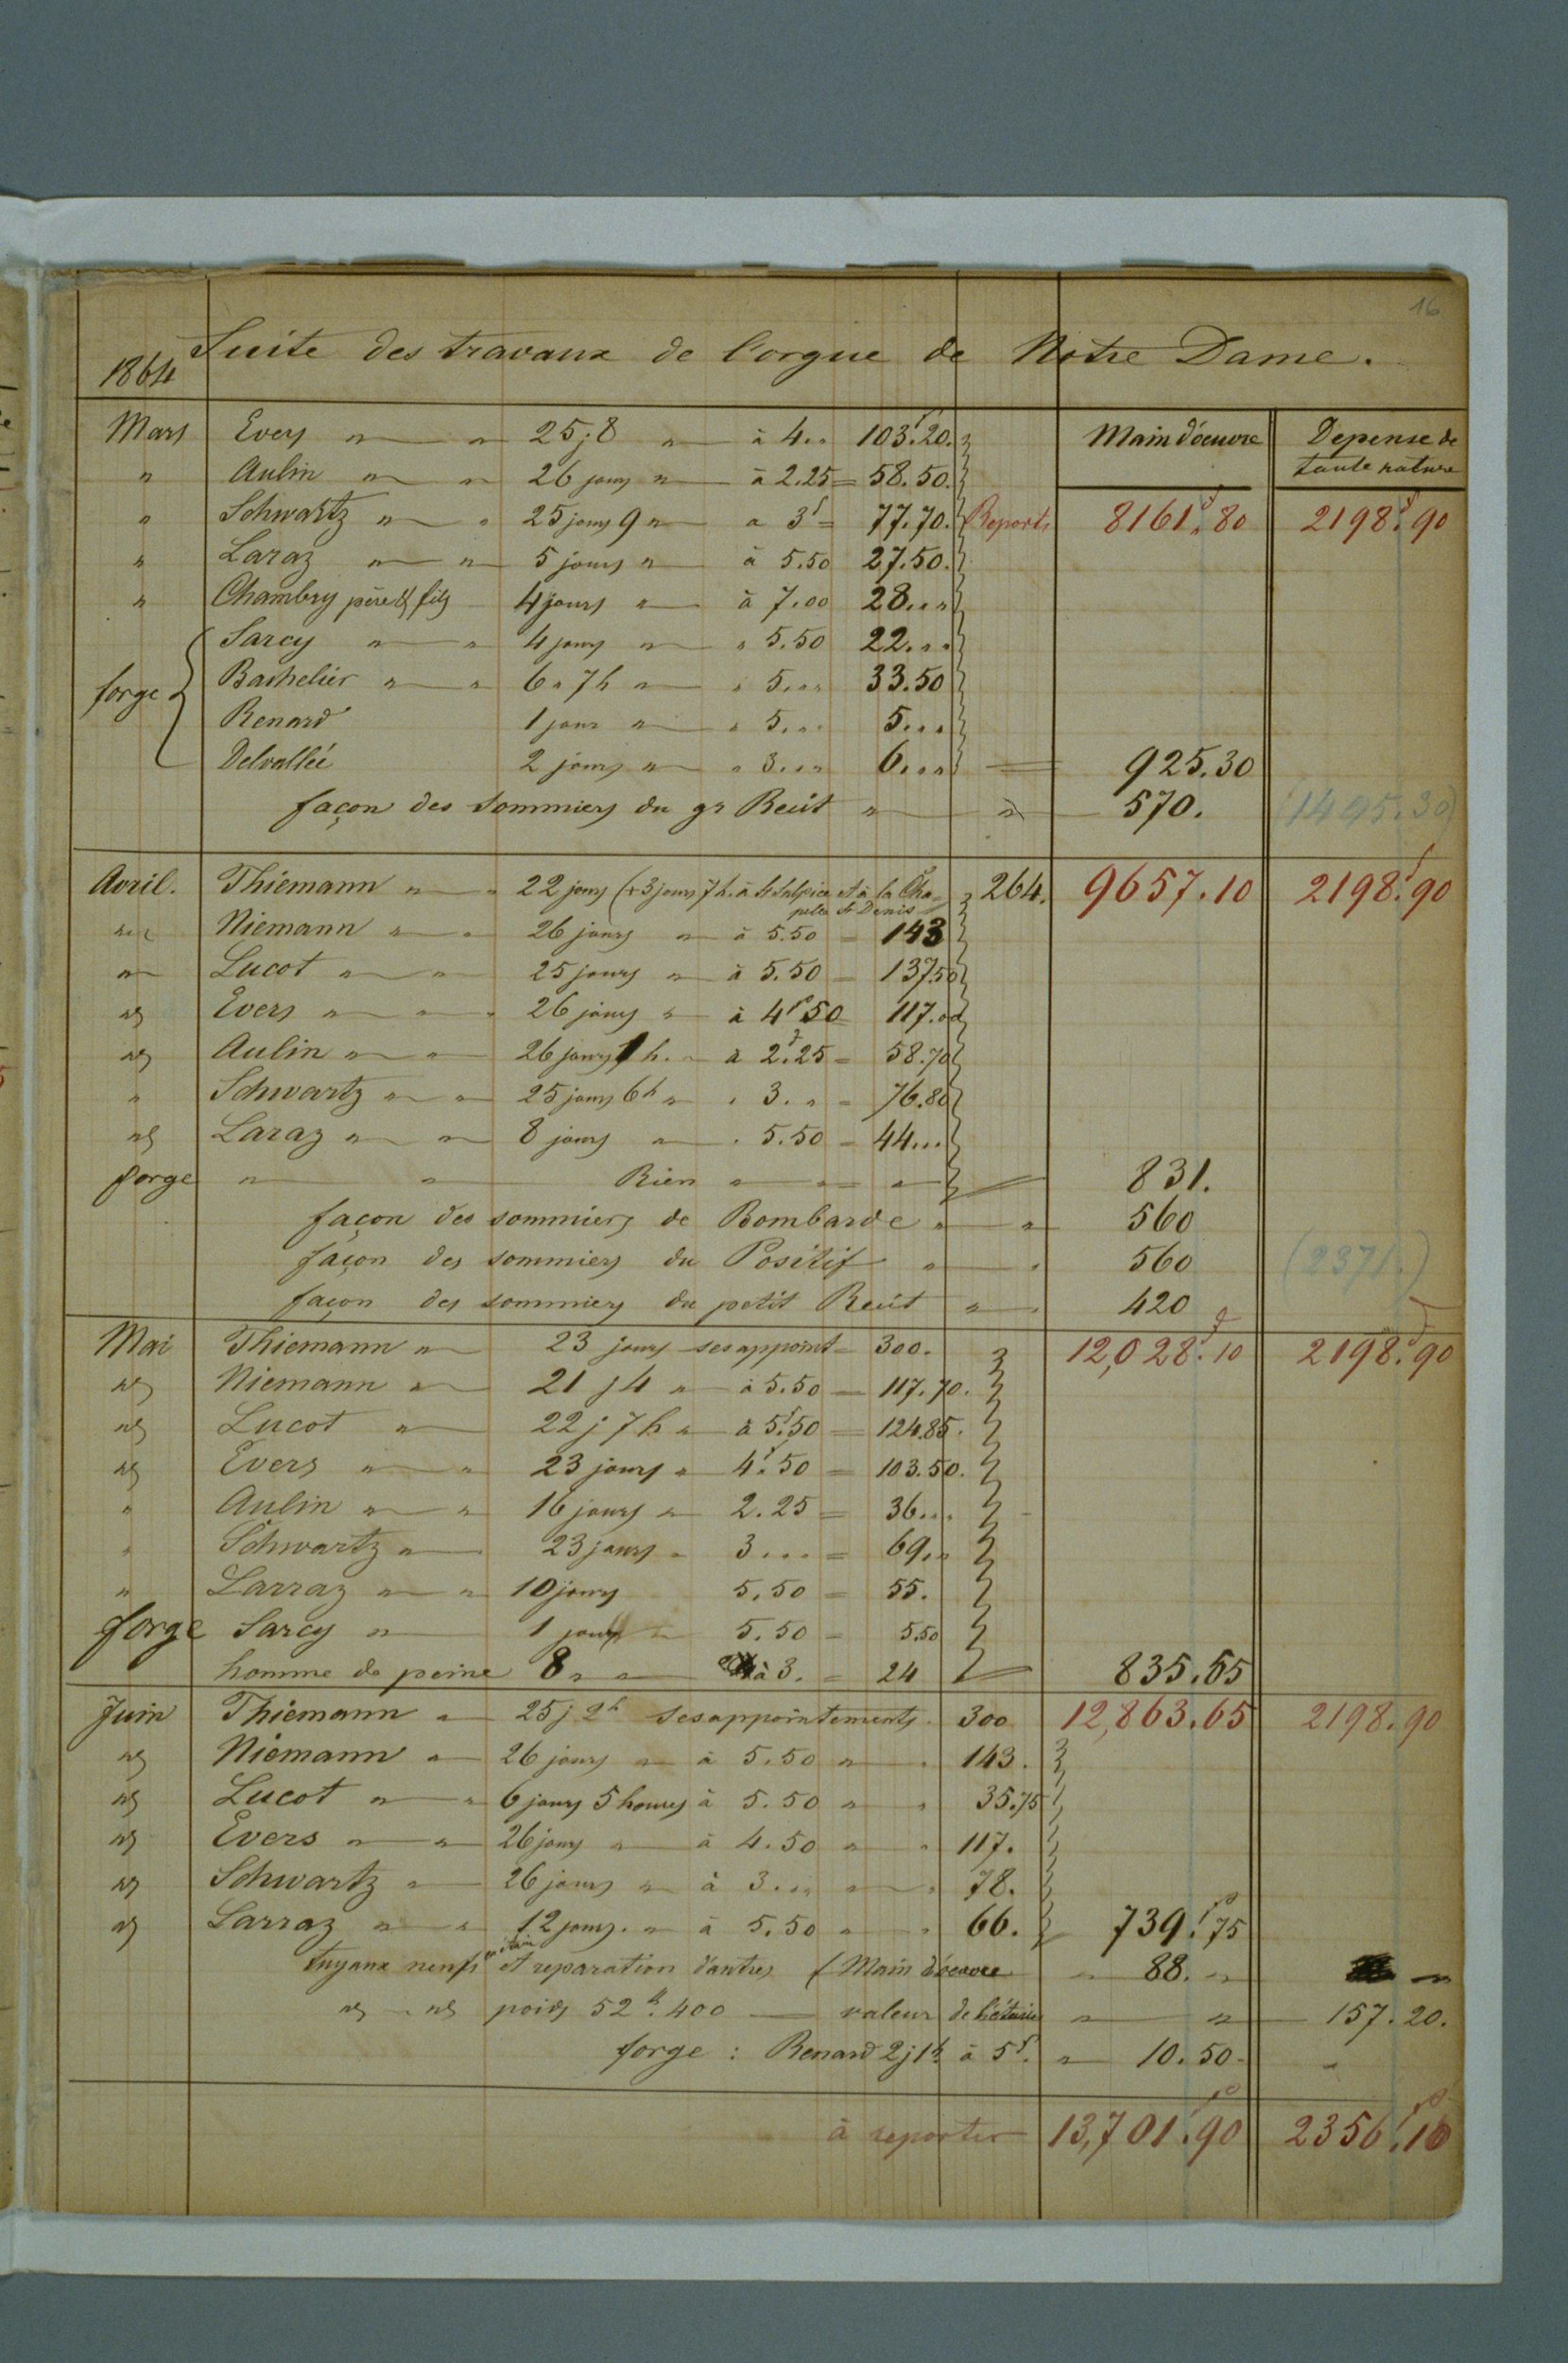 16
Suite des travaux de l'orgue de Notre Dame.
1864
Main d'œuvre Depense de toute nature
Mars Evers " " 25 j 8 " à 4 " " 103f.20.
" Aulin " " 26 jours " à 2.25 = 58.50.
" Schwartz " " 25 jours 9 " a 3f = 77.70. Reports 8161f.80 2198f.90
" Laraz " " 5 jours " à 5.50 27.50.
" Chambry père et fils 4 jours " à 7.00 28. " "
forge { Sarcy " " 4 jours " " 5.50 22. " "
Bachelier " " 6 " 7 h " " 5. " " 33.50
Renard 1 jour " " 5. " " 5. " "
Delvallée 2 jours " " 3. " " 6. " " 925.30
façon des sommiers du gr Recit " " 570. (1495.30)
Avril. Thiemann " " 22 jours (+ 3 jours 7 h. à St Sulpice et à la Chapelle St Denis 264. 9657.10 2198f.90
" Niemann " " 26 jours " à 5.50 = 143
" Lucot " " 25 jours " à 5.50 = 137.50
id Evers " " 26 jours " à 4f50 117.00
id Aulin " " 26 jours 1 h. " à 2f.25 = 58.70
" Schwartz " " 25 jours 6h " " 3. " = 76.80
id Laraz " " 8 jours " " 5.50 = 44. " "
forge " " Rien " " " 831.
façon des sommiers de Bombarde " " 560
façon des sommiers du Positif " " 560 (2371.)
façon des sommiers du petit Recit " " 420
Mai Thiemann " 23 jours ses appoint = 300. 12,028f.10 2198f.90
id Niemann " 21 j 4 " à 5.50 = 117.70.
id Lucot " 22 j 7 h " à 5f.50 = 124.85.
id Evers " " 23 jours " 4f.50 = 103.50.
" Aulin " " 16 jours " 2.25 = 36. " "
" Schwartz " 23 jours " 3. " " = 69. "
" Larraz " " 10 jours 5.50 = 55.
forge Sarcy " 1 jour " 5.50 = 5.50
homme de peine 8 " " à 3. = 24 835.55
Juin Thiemann " 25 j 2h ses appointements. 300 12,863.65 2198.90
id Niemann " 26 jours " à 5.50 " " 143.
id Lucot " " 6 jours 5 heures à 5.50 " " 35.75
id Evers " " 26 jours " à 4.50 " " 117.
id Schwartz " 26 jours " à 3. " " " " 78.
id Larraz " " 12 jours. " à 5.50 " " 66. 739f.75
tuyaux neufs en étain et reparation d'autres (Main d'œuvre " 88. " "
id " id poids 52k.400 valeur de l'étain " " 157.20.
forge : Renard 2 j 1h à 5f. " 10.50 "
à reporter 13,701f.90 2356f.10